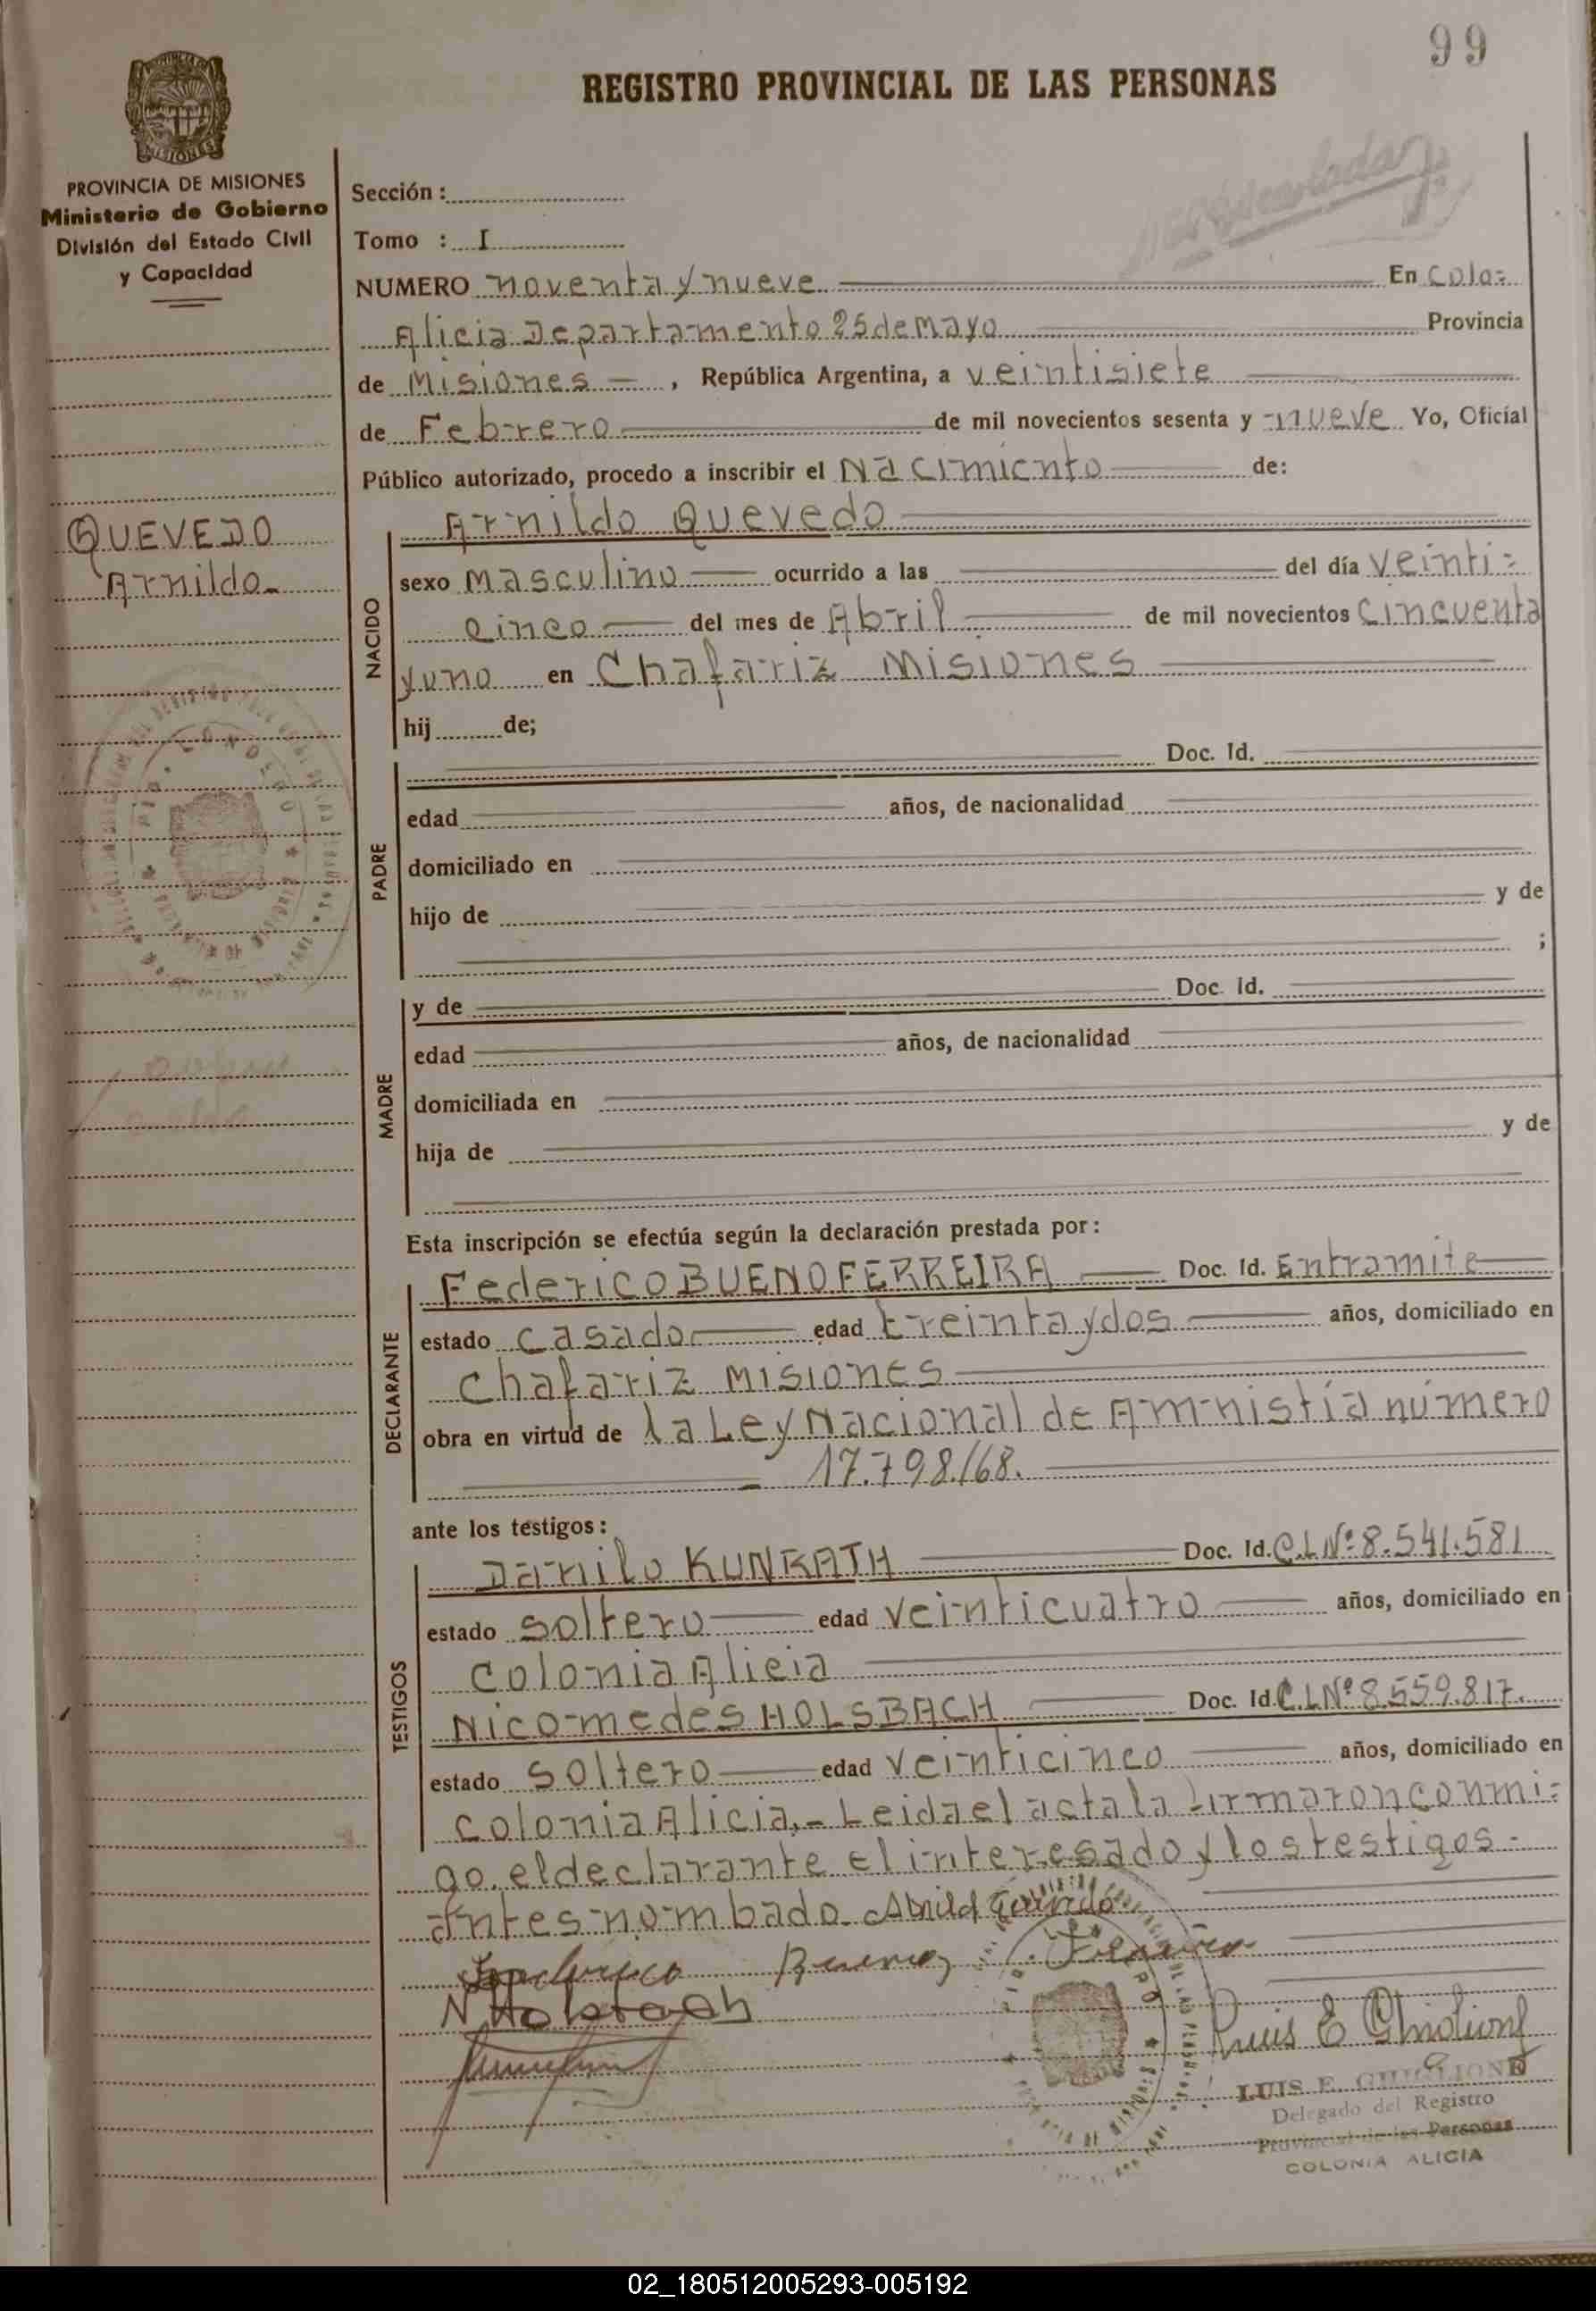 99
REGISTRO PROVINCIAL DE LAS PERSONAS
MISIONES
PROVINCIA DE MISIONES
Ministerio de Gobierno
División del Estado Civil
y Capacidad
QUEVEDO
Arnildo
Sección :
Tomo : I
NUMERO noventa y nueve En Colo=
Alicia Departamento 25 de Mayo Provincia
de Misiones , República Argentina, a veintisiete
de Febrero de mil novecientos sesenta y nueve Yo, Oficial
Público autorizado, procedo a inscribir el Nacimiento de:
NACIDO
Arnildo Quevedo
sexo masculino ocurrido a las del día veinti=
cinco del mes de Abril de mil novecientos cincuenta
y uno en Chafariz Misiones
hij de;
PADRE
Doc. Id.
edad años, de nacionalidad
domiciliado en
hijo de y de
;
MADRE
y de Doc. Id.
edad años, de nacionalidad
domiciliada en
hija de y de
Esta inscripción se efectúa según la declaración prestada por:
DECLARANTE
Federico BUENO FERREIRA Doc. Id. Entramite
estado casado edad treinta y dos años, domiciliado en
Chafariz Misiones
obra en virtud de la Ley Nacional de Amnistía número
17.798/68.
ante los testigos:
TESTIGOS
Danilo KUNRATH Doc. Id. C.I.Nº 8.541.581
estado soltero edad veinticuatro años, domiciliado en
Colonia Alicia
Nicomedes HOLSBACH Doc. Id. C.I.Nº 8.559.817.
estado soltero edad veinticinco años, domiciliado en
Colonia Alicia.- Leida el acta la firmaron conmi=
go el declarante el interesado y los testigos
antes nombado
Bueno
N Holsbach
Luis E Ghiglione
LUIS E. GHIGLIONE
Delegado del Registro
Provincial de las Personas
COLONIA ALICIA
02_180512005293-005192